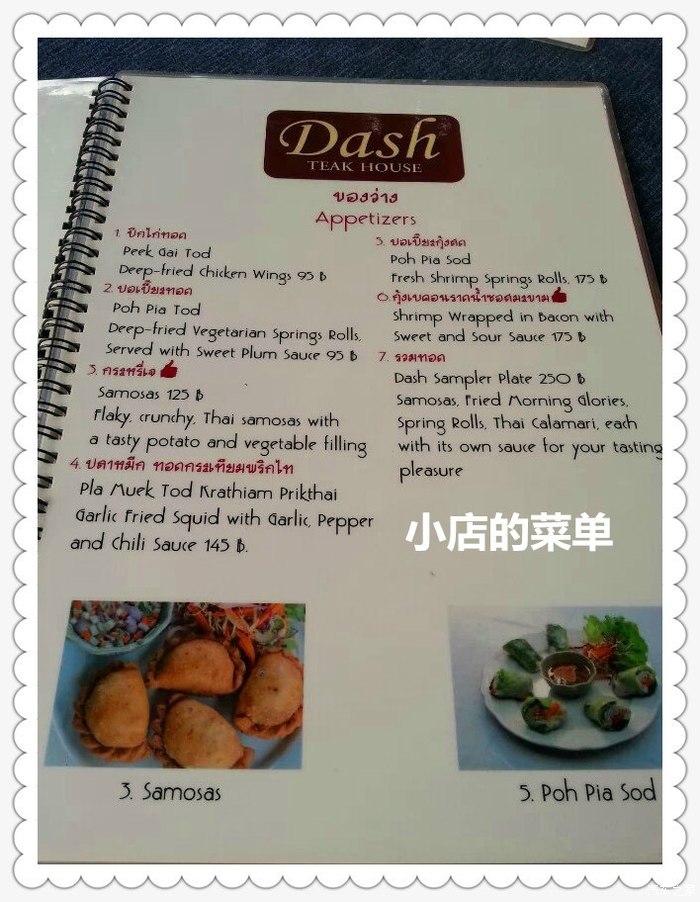 Dash
TEAK HOUSE
ของว่าง
Appetizers
1. ปีกไก่ทอด
Peek Gai Tod
Deep-fried Chicken Wings 95 ฿
2. ปอเปี๊ยะทอด
Poh Pia Tod
Deep-fried Vegetarian Springs Rolls,
Served with Sweet Plum Sauce 95 ฿
3. กระหรี่เจ
Samosas 125 ฿
Flaky, crunchy, Thai samosas with
a tasty potato and vegetable filling
4. ปลาหมึก ทอดกระเทียมพริกไท
Pla Muek Tod Krathiam Prikthai
Garlic Fried Squid with Garlic, Pepper
and Chili Sauce 145 ฿.
5. ปอเปี๊ยะกุ้งสด
Poh Pia Sod
Fresh Shrimp Springs Rolls, 175 ฿
6. กุ้งเบคอนราดน้ำซอสมะขาม
Shrimp Wrapped in Bacon with
Sweet and Sour Sauce 175 ฿
7. รวมทอด
Dash Sampler Plate 250 ฿
Samosas, Fried Morning Glories,
Spring Rolls, Thai Calamari, each
with its own sauce for your tasting
pleasure
小店的菜单
3. Samosas
5. Poh Pia Sod